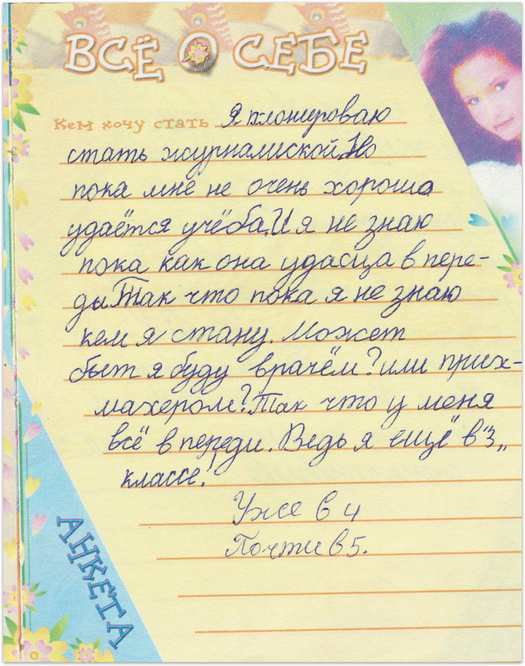 ВСЁ О СЕБЕ
Кем хочу стать Я плонероваю
стать журналиской. Но
пока мне не очень хороша
удаётся учёба. И я не знаю
пока как она удасца в пере-
ды. Так что пока я не знаю
кем я стану. Может
быт я буду врачём? или прих-
махером? Так что у меня
всё в переди. Ведь я ещё в "3"
классе!
Уже в 4
Почти в 5.
АНКЕТА